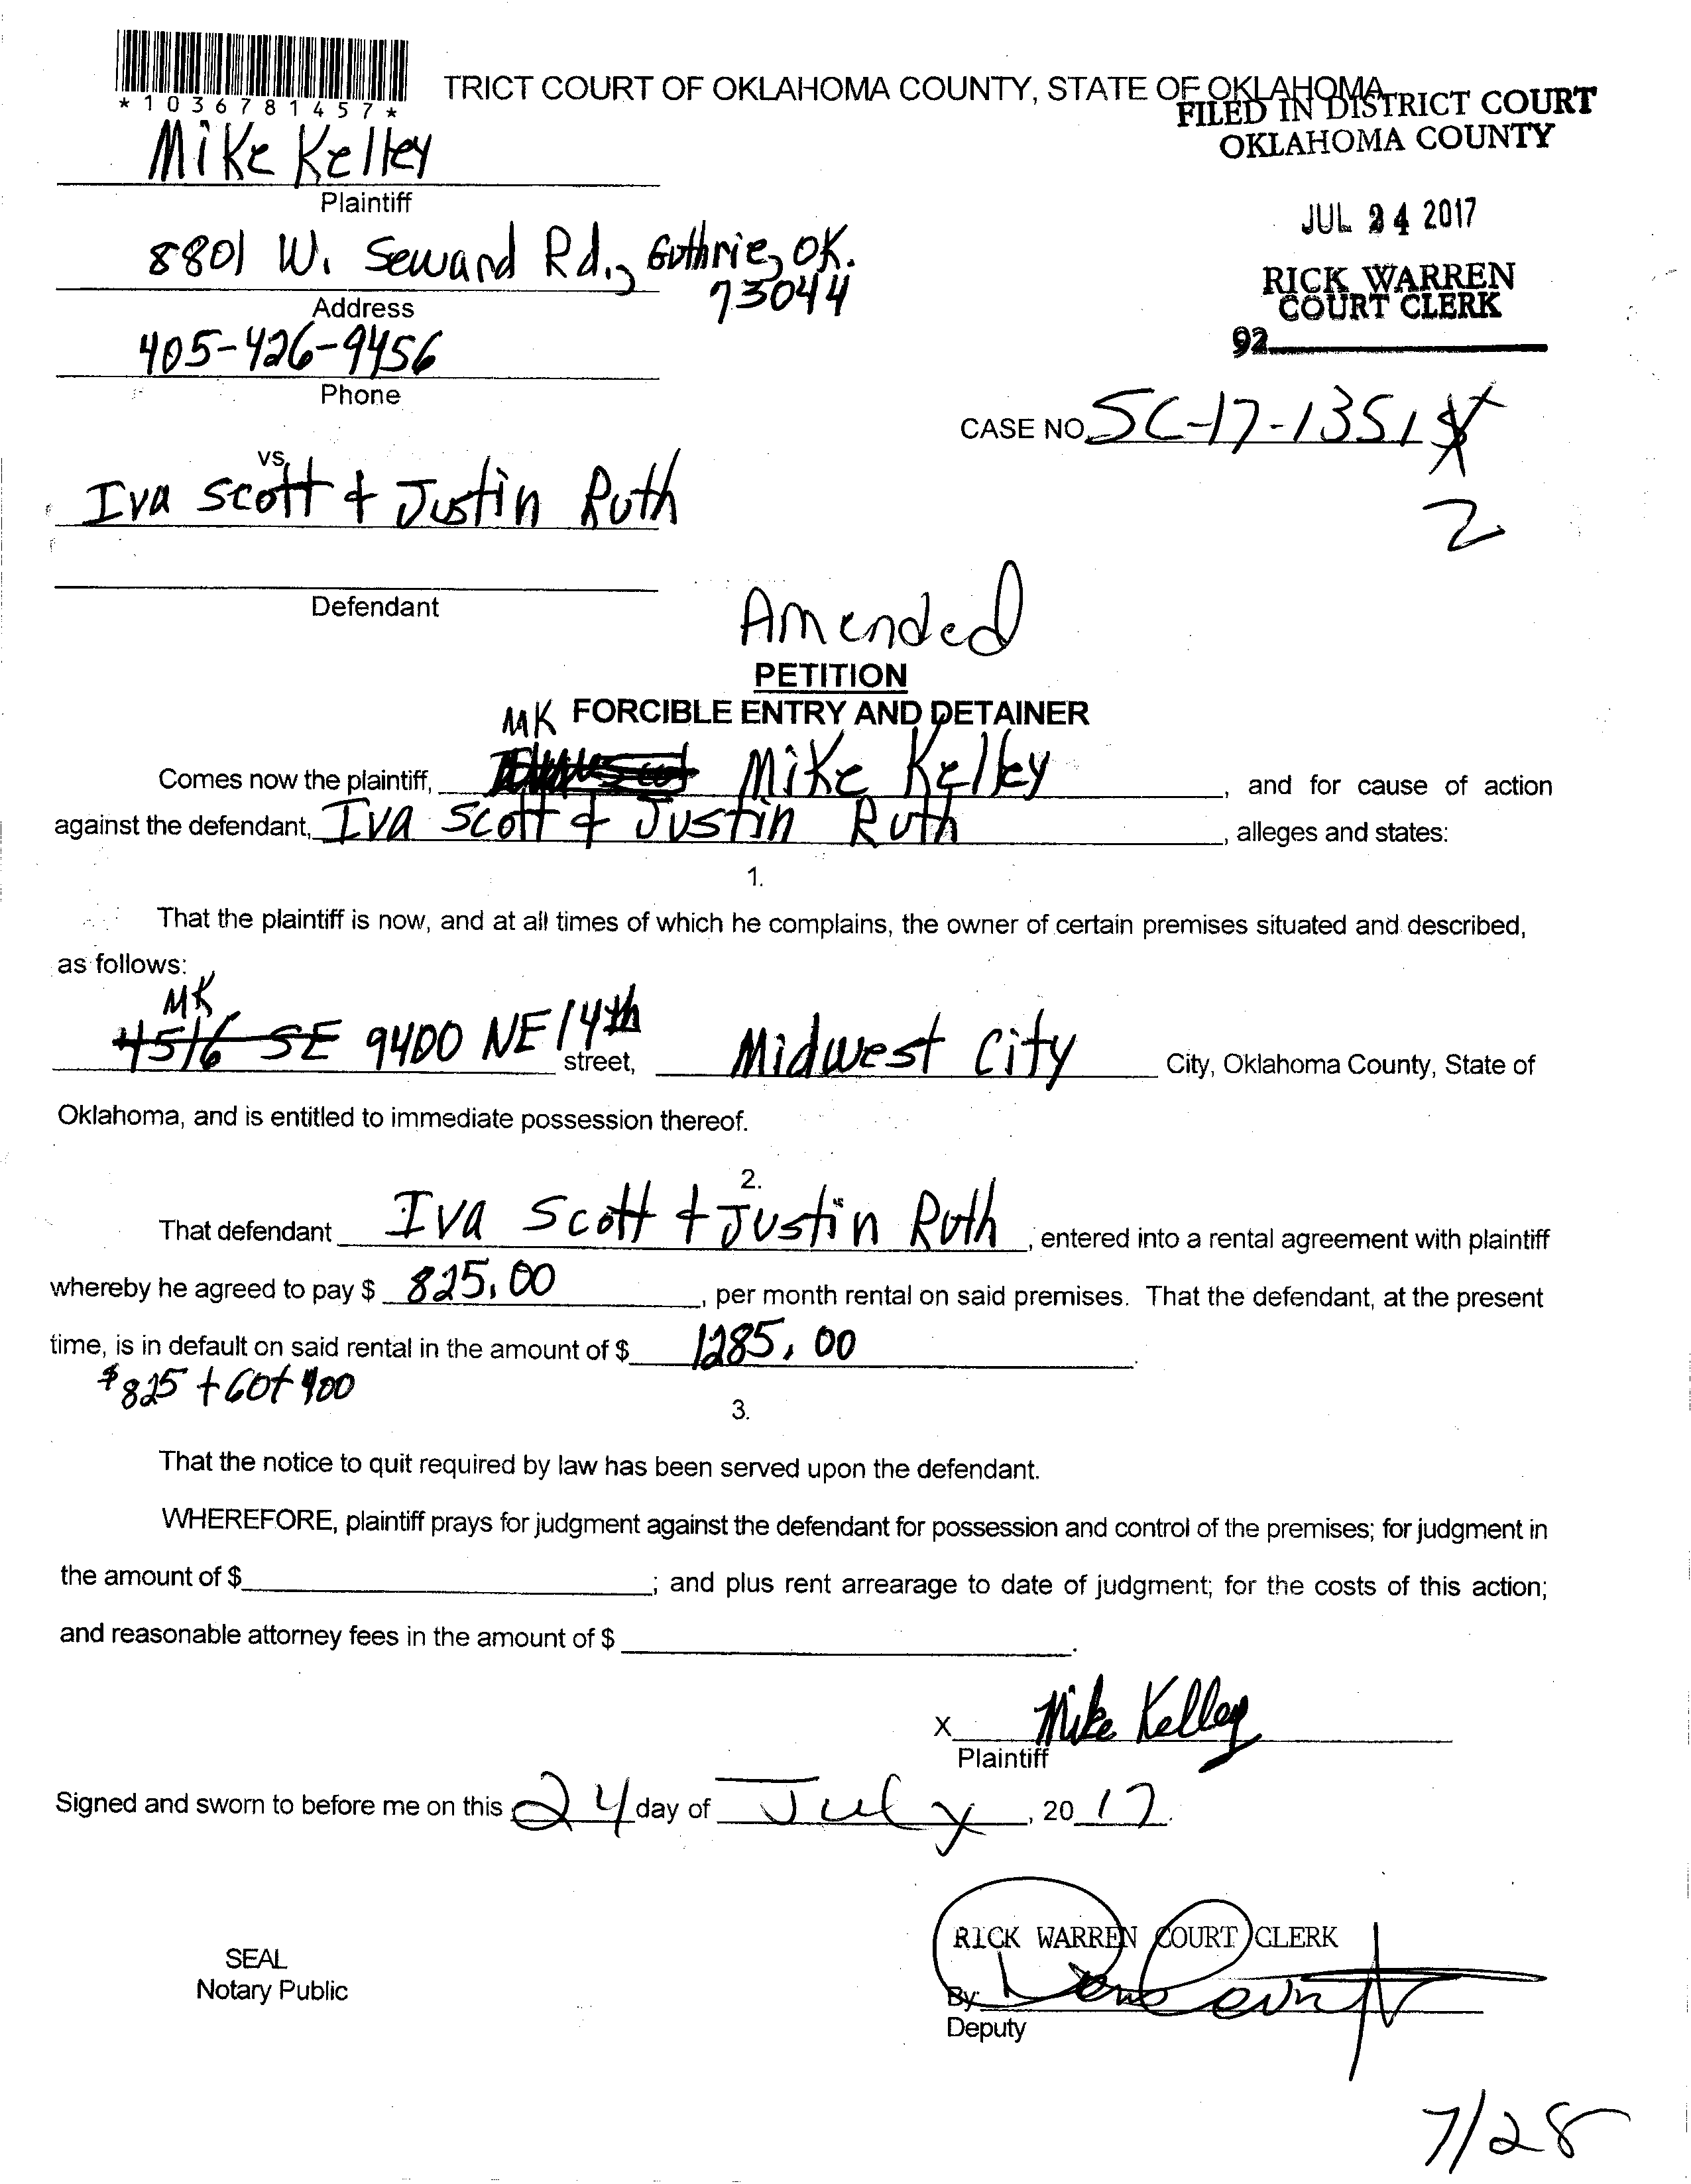 *1036781457*
TRICT COURT OF OKLAHOMA COUNTY, STATE OF OKLAHOMA
FILED IN DISTRICT COURT
OKLAHOMA COUNTY
Mike Kelley
Plaintiff
JUL 24 2017
8801 W. Seward Rd., Guthrie, OK.
73044
Address
RICK WARREN
COURT CLERK
92
405-426-9456
Phone
CASE NO. SC-17-1351
2
vs.
Iva Scott & Justin Ruth
Defendant
Amended
PETITION
MK FORCIBLE ENTRY AND DETAINER
Comes now the plaintiff, Mike Kelley, and for cause of action
against the defendant, Iva Scott & Justin Ruth, alleges and states:
1.
That the plaintiff is now, and at all times of which he complains, the owner of certain premises situated and described,
as follows:
MK
4516 SE 9400 NE 14th street, Midwest City City, Oklahoma County, State of
Oklahoma, and is entitled to immediate possession thereof.
2.
That defendant Iva Scott & Justin Ruth, entered into a rental agreement with plaintiff
whereby he agreed to pay $ 825.00, per month rental on said premises. That the defendant, at the present
time, is in default on said rental in the amount of $ 1285.00.
$825 + 60 + 400
3.
That the notice to quit required by law has been served upon the defendant.
WHEREFORE, plaintiff prays for judgment against the defendant for possession and control of the premises; for judgment in
the amount of $ ; and plus rent arrearage to date of judgment; for the costs of this action;
and reasonable attorney fees in the amount of $ .
X Mike Kelley
Plaintiff
Signed and sworn to before me on this 24 day of July, 2017.
RICK WARREN COURT CLERK
SEAL
Notary Public
By:
Deputy
7/28